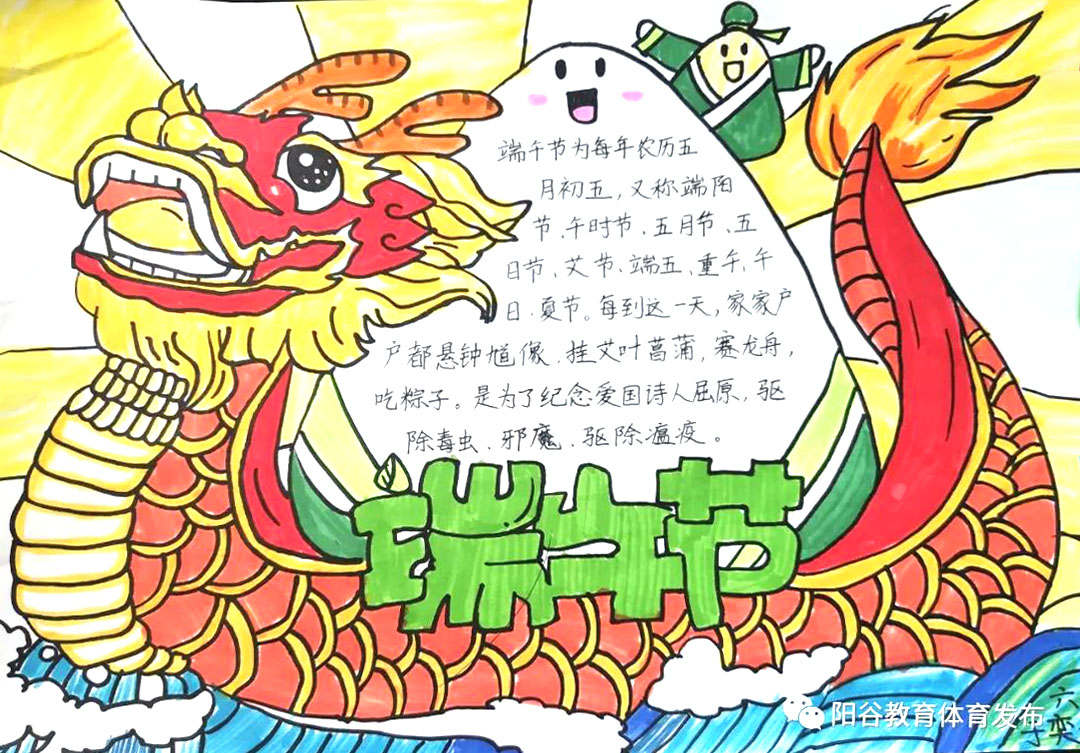 端午节为每年农历五
月初五，又称端阳
节、午时节、五月节、五
日节、艾节、端五、重午、午
日、夏节。每到这一天，家家户
户都悬钟馗像、挂艾叶菖蒲，赛龙舟，
吃粽子。是为了纪念爱国诗人屈原，驱
除毒虫、邪魔、驱除瘟疫。
端午节
阳谷教育体育发布